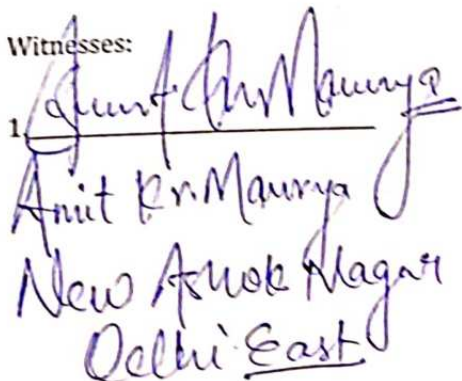 Witnesses:
1. Amit Kr Maurya
Amit Kr. Maurya
New Ashok Nagar
Delhi East